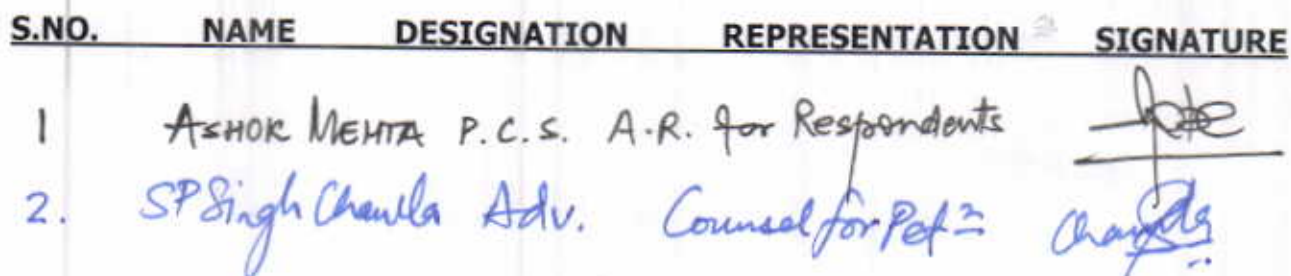 S.NO. NAME DESIGNATION REPRESENTATION SIGNATURE
1 ASHOK MEHTA P.C.S. A.R. for Respondents
2. SP Singh Chawla Adv. Counsel for Pet